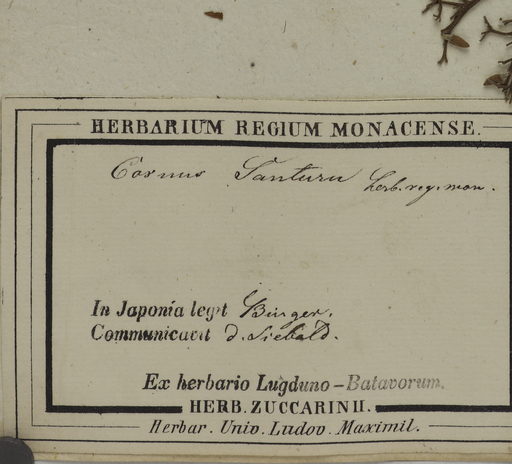 HERBARIUM REGIUM MONACENSE.
Cornus Santuru herb. reg. mon.
In Japonia legit Bürger.
Communicavit d. Siebold.
Ex herbario Lugduno-Batavorum.
HERB. ZUCCARINII.
Herbar. Univ. Ludov. Maximil.